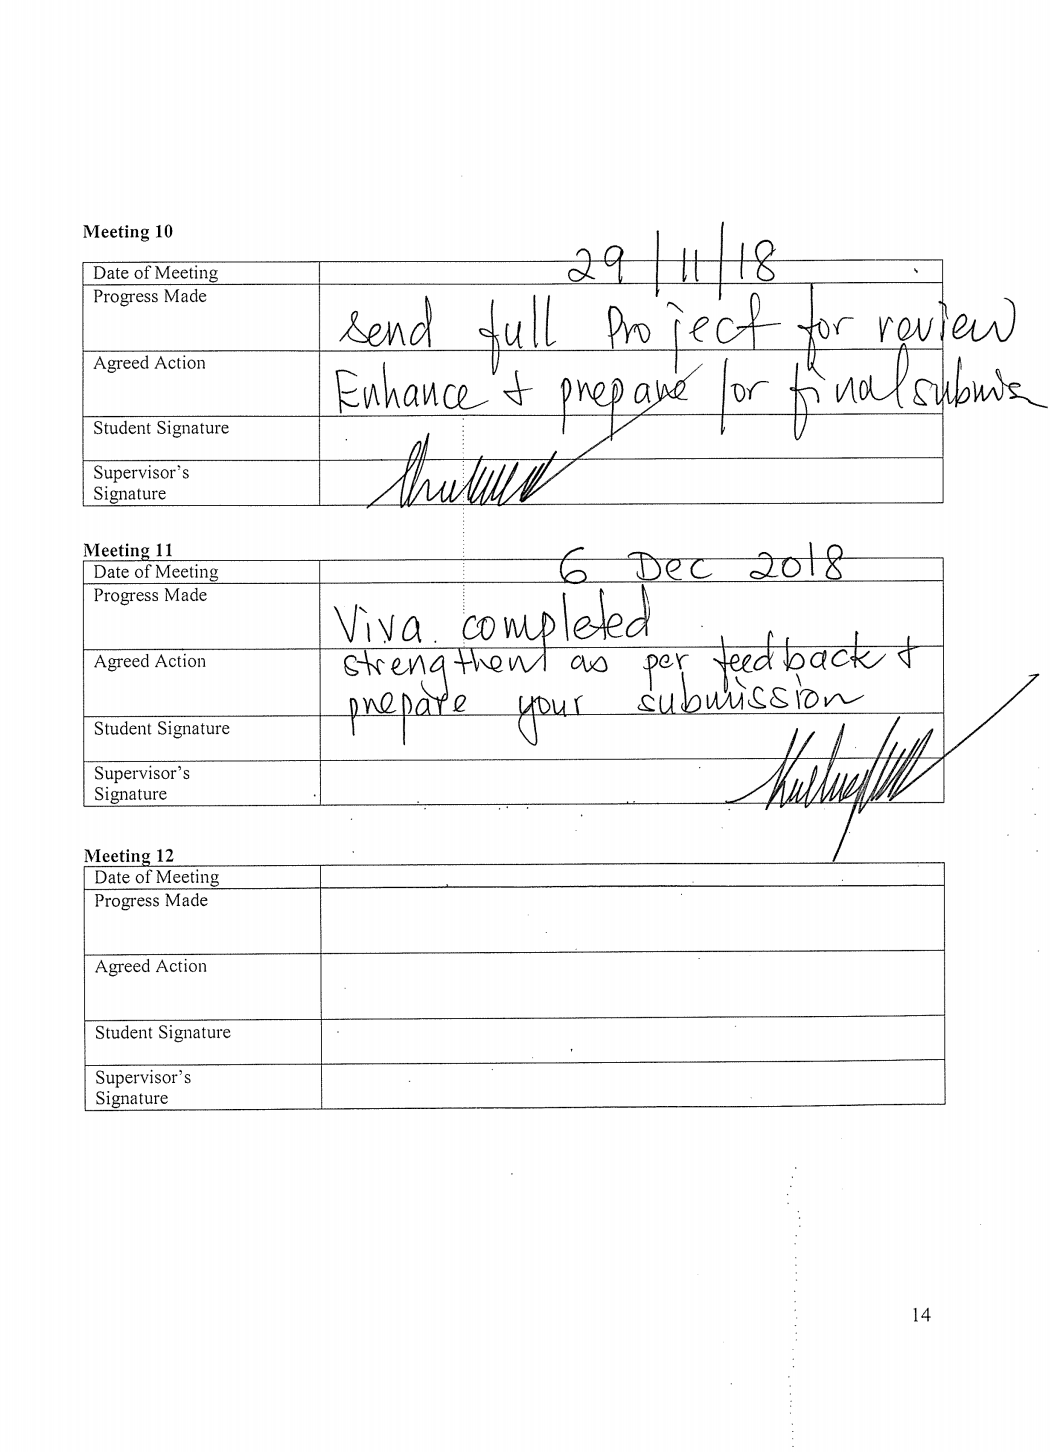 Meeting 10
Date of Meeting 29/11/18
Progress Made send full Project for review
Agreed Action Enhance + prepare for final submis
Student Signature
Supervisor's
Signature
Meeting 11
Date of Meeting 6 Dec 2018
Progress Made Viva completed
Agreed Action strengthen as per feedback +
prepare your submission
Student Signature
Supervisor's
Signature
Meeting 12
Date of Meeting
Progress Made
Agreed Action
Student Signature
Supervisor's
Signature
14